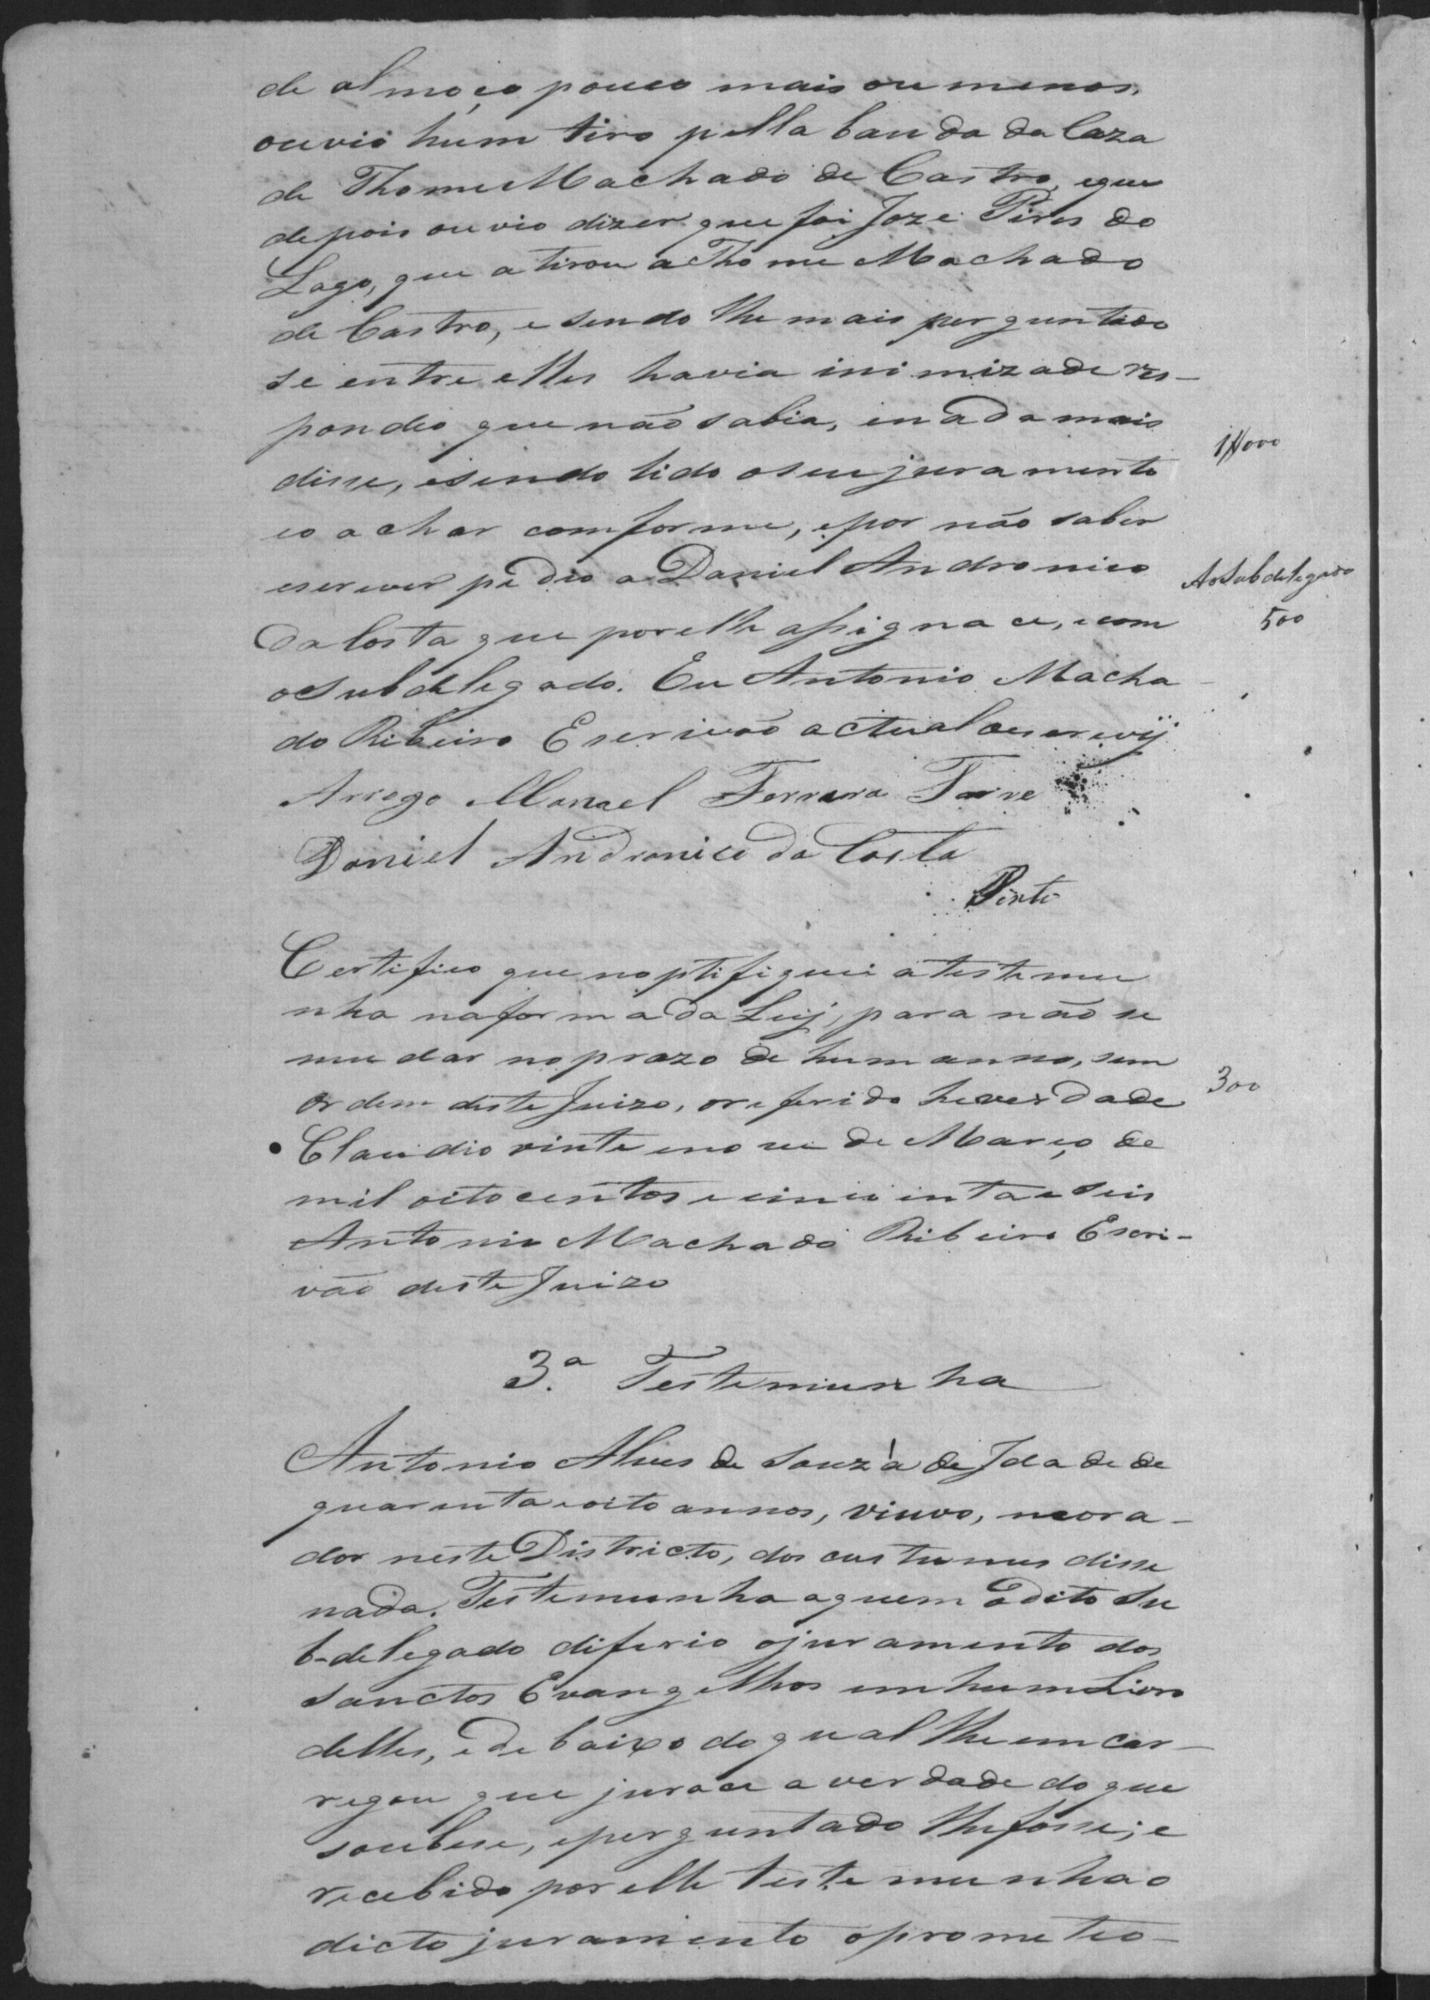 de almoço pouco mais ou menos,
ouvio hum tiro pella banda da Caza
de Thome Machado de Castro, eque
depois ouvio dizer que foi Joze Pires do
Lago, que atirou a Thome Machado
de Castro, e sendo lhe mais perguntado
se entre elles havia inimizade res-
pondeo que não sabia, e nada mais
disse, esendo lido oseu juramento
eo achar comforme, epor não saber
escrever pedio a Daniel Andronico
da Costa que por elle assignace, e com
o Subdelegado. Eu Antonio Macha
do Ribeiro Escrivão actual oescrevÿ
1$000
Ao Subdelegado
500
Arrogo Manoel Ferrera Torre
Daniel Andronico da Costa
Pinto
Certifico que noptifiquei a testemu
nha naforma da Leij, para não se
mudar no prazo de hum anno, sem
ordem deste Juizo, oreferido he verdade
Claudio vinte enove de Março de
mil oitocentos e cincoenta e seis
Antonio Machado Ribeiro Escri-
vão deste Juizo
300
3.ª Testemunha
Antonio Alves de Souza de Idade de
quarenta e oito annos, viuvo, mora-
dor neste Districto, dos custumes disse
nada. Testemunha aquem o dito Su
b-delegado diferio ojuramento dos
Sanctos Evangelhos em hum Livro
delles, e de baixo do qual lhe emcar-
regou que jurace a verdade do que
soubese, eperguntado lhe fosse; e
recebido por elle testemunha o
dicto juramento oprometeo-